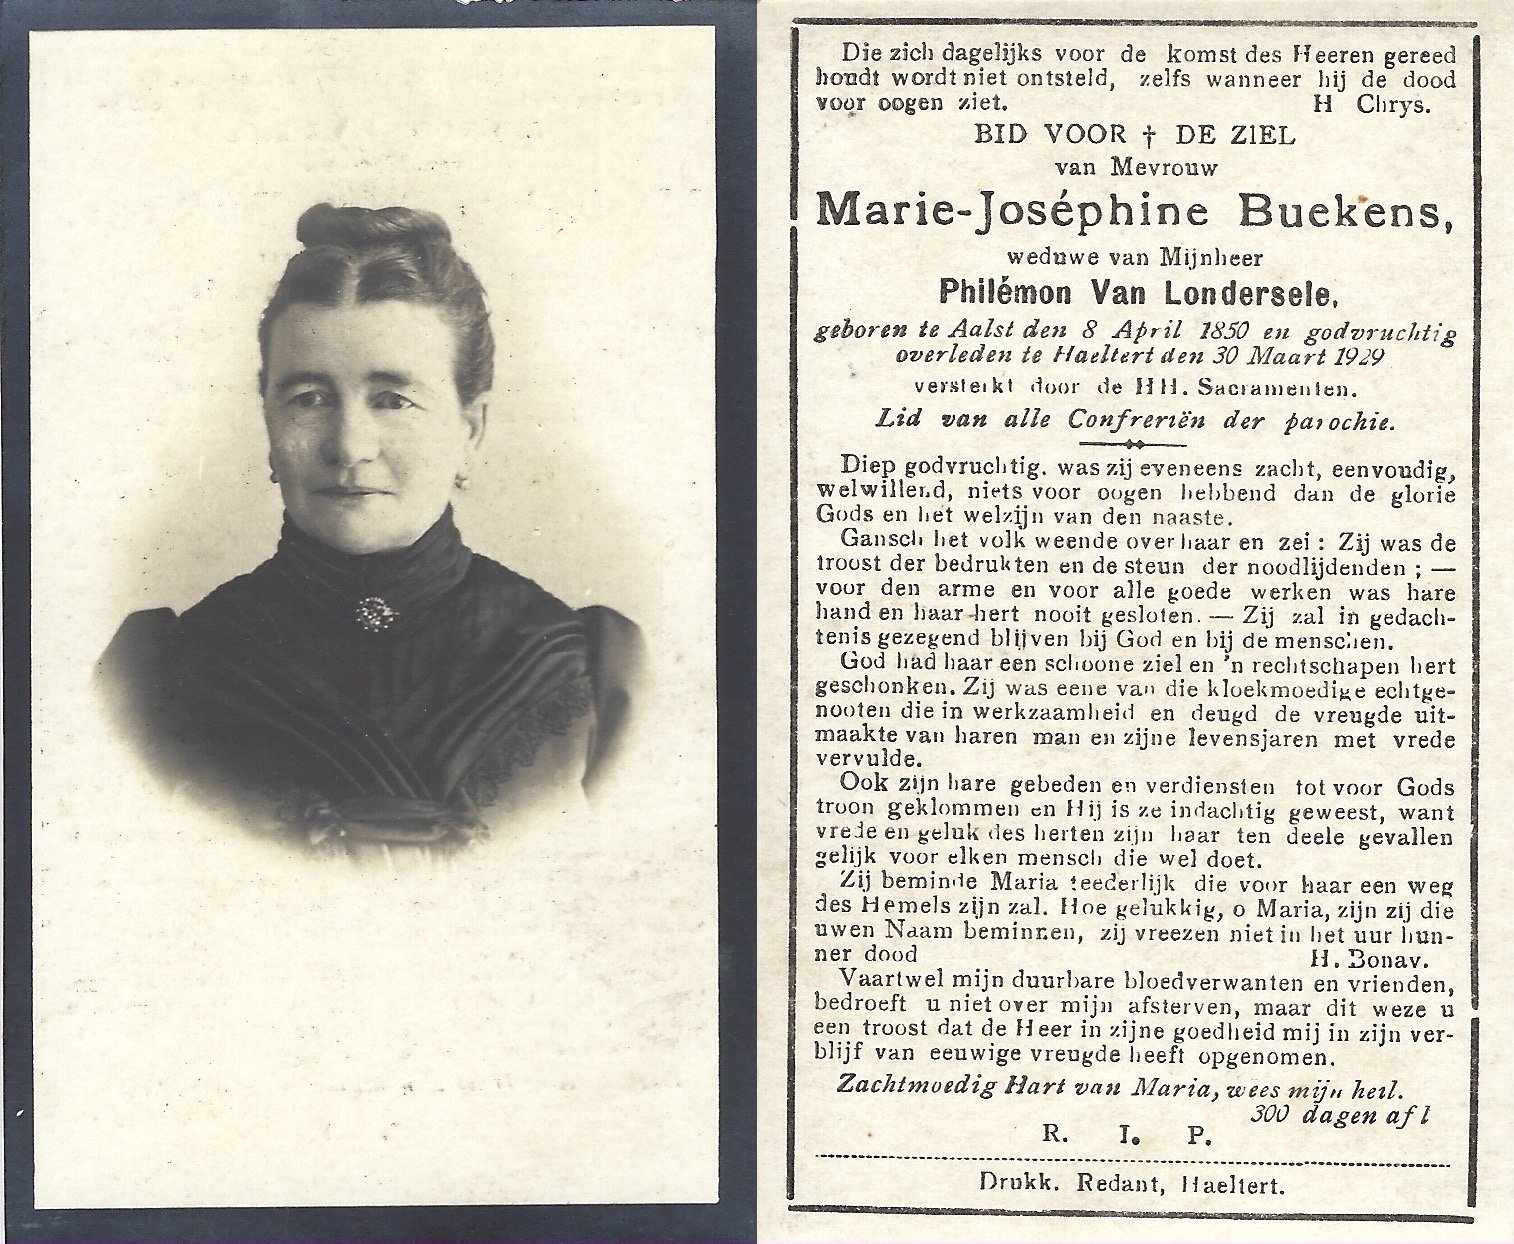 Die zich dagelijks voor de komst des Heeren gereed
houdt wordt niet ontsteld, zelfs wanneer hij de dood
voor oogen ziet. H Chrys.
BID VOOR † DE ZIEL
van Mevrouw
Marie-Joséphine Buekens,
weduwe van Mijnheer
Philémon Van Londersele,
geboren te Aalst den 8 April 1850 en godvruchtig
overleden te Haeltert den 30 Maart 1929
versterkt door de HH. Sacramenten.
Lid van alle Confreriën der parochie.
Diep godvruchtig. was zij eveneens zacht, eenvoudig,
welwillend, niets voor oogen hebbend dan de glorie
Gods en het welzijn van den naaste.
Gansch het volk weende over haar en zei : Zij was de
troost der bedrukten en de steun der noodlijdenden ; —
voor den arme en voor alle goede werken was hare
hand en haar hert nooit gesloten. — Zij zal in gedach-
tenis gezegend blijven bij God en bij de menschen.
God had haar een schoone ziel en 'n rechtschapen hert
geschonken. Zij was eene van die kloekmoedige echtge-
nooten die in werkzaamheid en deugd de vreugde uit-
maakte van haren man en zijne levensjaren met vrede
vervulde.
Ook zijn hare gebeden en verdiensten tot voor Gods
troon geklommen en Hij is ze indachtig geweest, want
vrede en geluk des herten zijn haar ten deele gevallen
gelijk voor elken mensch die wel doet.
Zij beminde Maria teederlijk die voor haar een weg
des Hemels zijn zal. Hoe gelukkig, o Maria, zijn zij die
uwen Naam beminnen, zij vreezen niet in het uur hun-
ner dood H. Bonav.
Vaartwel mijn duurbare bloedverwanten en vrienden,
bedroeft u niet over mijn afsterven, maar dit weze u
een troost dat de Heer in zijne goedheid mij in zijn ver-
blijf van eeuwige vreugde heeft opgenomen.
Zachtmoedig Hart van Maria, wees mijn heil.
300 dagen afl
R. I. P.
Drukk. Redant, Haeltert.